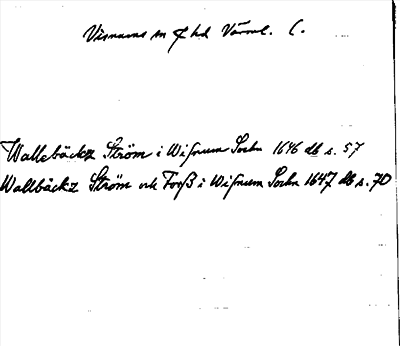 Visnums sn ⟨hd Värml. l.
Wallebäckz Ström i Wisnum Sochn 1646 db s. 57
Wallbäckz Ström och Forß i Wisnum Sochn 1647 db s. 70